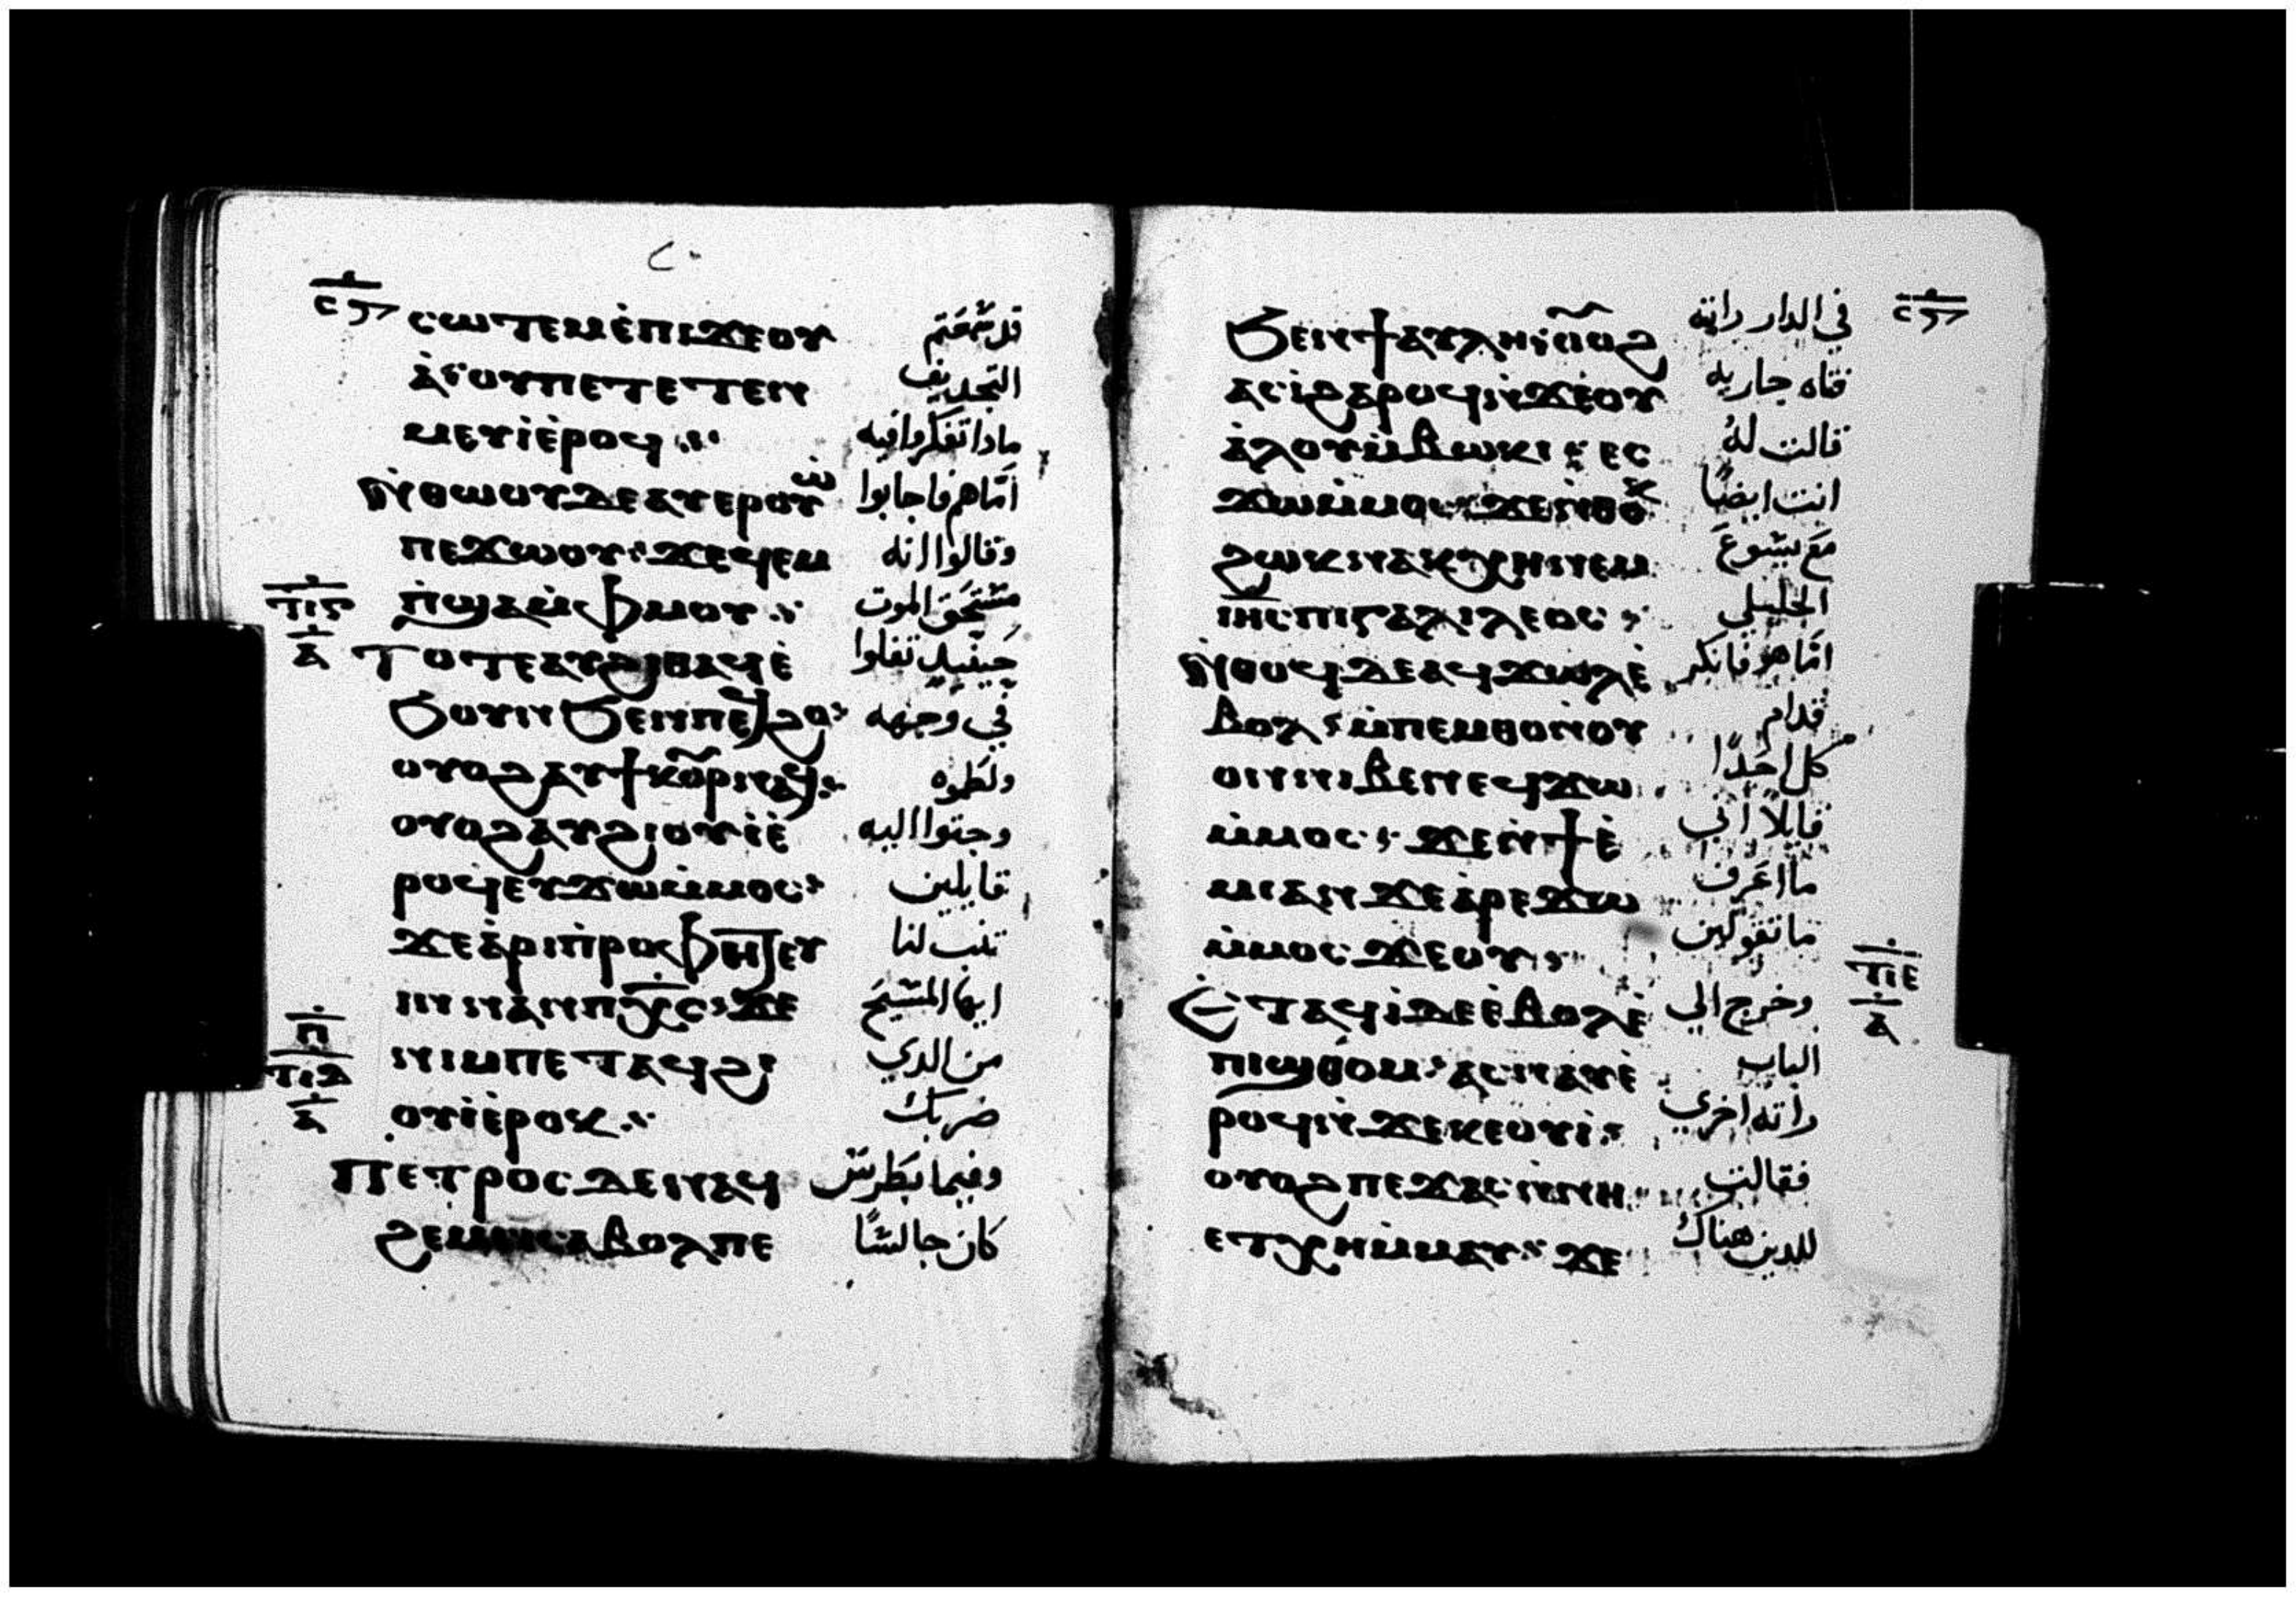 ⲥⲱⲧⲉⲙⲉ̀ⲡⲓϫⲉⲟⲩ قد سمعتم
ⲁ̀ⲟⲩⲡⲉⲧⲉⲧⲉⲛ التجديف
ⲙⲉⲩⲓ̀ⲉ̀ⲣⲟϥ ماذا تفكروا فيه
ⲛ̀ⲑⲱⲟⲩⲇⲉⲁⲩⲉⲣⲟⲩⲱ̀ امّا هم فاجابوا
ⲡⲉϫⲱⲟⲩ ϫⲉϥⲉⲙ وقالوا انه
ⲡ̀ϣⲁⲙ̀ⲫⲙⲟⲩ مستحق الموت
ⲧⲟⲧⲉⲁⲩϩⲓⲑⲁϥⲉ̀ حينيد تفلوا
ϧⲟⲩⲛϧⲉⲛⲡⲉϥϩⲟ في وجهه
ⲟⲩⲟϩⲁⲩϯⲕⲟⲩⲣⲛⲁϥ ولطموه
ⲟⲩⲟϩⲁⲩϩⲓⲟⲩⲓ̀ⲉ̀ وجثوا اليه
ⲣⲟϥⲉⲩϫⲱⲙ̀ⲙⲟⲥ قايلين
ϫⲉⲁ̀ⲣⲓⲡ̀ⲣⲟⲫⲏⲧⲉⲩ تنب لنا
ⲓⲛⲛⲁⲛⲡⲭ̅ⲥ ϫⲉ ايها المسيح
ⲛⲓⲙⲡⲉⲧⲁϥϩⲓ من الدي
ⲟⲩⲓ̀ⲉ̀ⲣⲟⲕ ضربك
ⲡⲉⲧⲣⲟⲥⲇⲉⲛⲁϥ وفيما بطرس
ϩⲉⲙⲥⲓⲥⲁⲃⲟⲗⲡⲉ كان جالسًا
ϧⲉⲛϯⲁⲩⲗⲏ ⲟⲩⲟϩ في الدار راته
ⲁⲥⲓ̀ϩⲁⲣⲟϥⲛ̀ϫⲉⲟⲩ فتاه جاريه
ⲁ̀ⲗⲟⲩⲙ̀ⲃⲱⲕⲓ ⲉⲥ قالت له
ϫⲱⲙ̀ⲙⲟⲥ ϫⲉⲛ̀ⲑⲟⲕ انت ايضًا
ϩⲱⲕⲛⲁⲕⲭⲏⲛⲉⲙ مع يسوع
ⲓⲏ̅ⲥⲡⲓⲅⲁⲗⲓⲗⲉⲟⲥ الجليلي
ⲛ̀ⲑⲟϥⲇⲉⲁϥϫⲱⲗⲉ̀ امّا هو فانكر
ⲃⲟⲗ ⲙ̀ⲡⲉⲙⲑⲟⲛ̀ⲟⲩ قدام
ⲟⲛⲛⲓⲃⲉⲛⲉϥϫⲱ كل احدًا
ⲙ̀ⲙⲟⲥ ϫⲉⲛ̀ϯⲉ̀ قايلًا اني
ⲙⲓⲁⲛϫⲉⲁ̀ⲣⲉϫⲱ ما اعرف
ⲙ̀ⲙⲟⲥϫⲉⲟⲩ ما تقولين
ⲧⲓⲉ
ⲁ
ⲉⲧⲁϥⲓ̀ⲇⲉⲉ̀ⲃⲟⲗⲉ̀ وخرج الي
ⲡⲓⲑⲟⲙ ⲁⲥⲛⲁⲩⲉ̀ الباب
ⲣⲟϥⲛ̀ϫⲉⲕⲉⲟⲩⲓ̀ راته اخري
ⲟⲩⲟϩⲡⲉϫⲁⲥⲛ̀ⲛⲏ فقالت
ⲉⲧⲭⲏⲙ̀ⲙⲁⲩ ϫⲉ للدين هناك